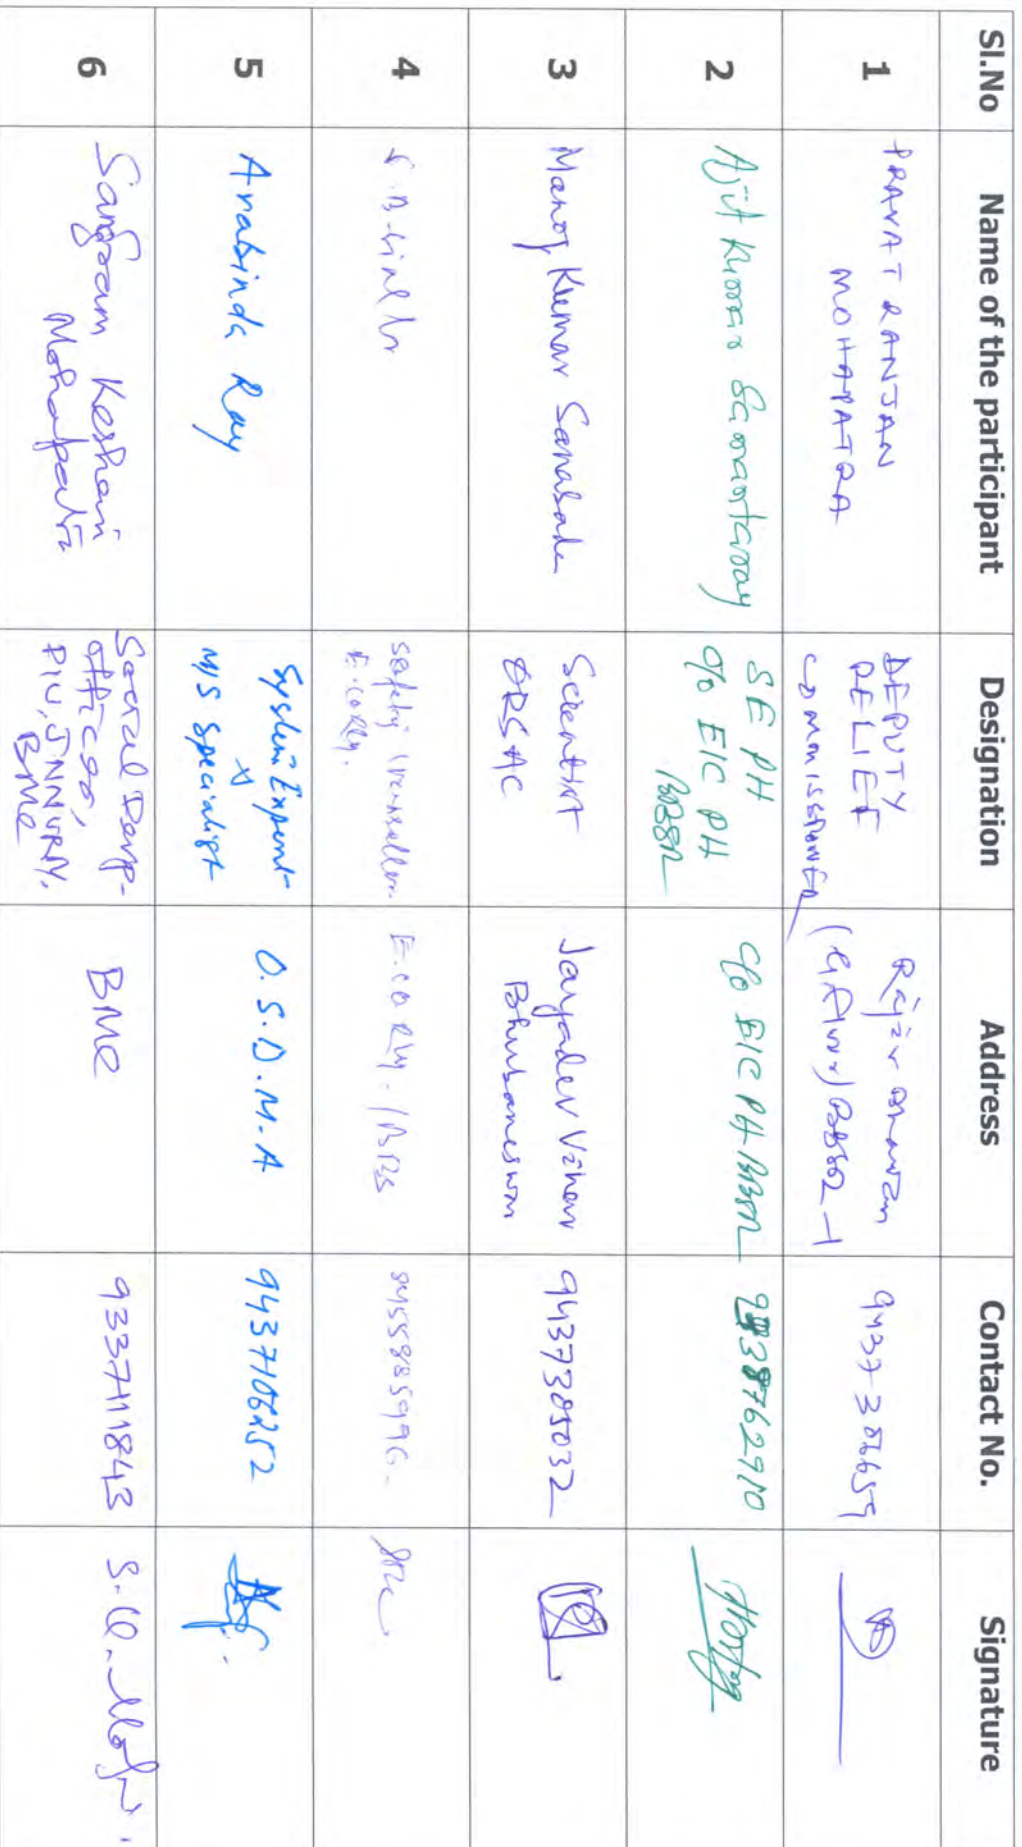 Sl.No Name of the participant Designation Address Contact No. Signature
1
PRAVAT RANJAN
MOHAPATRA
DEPUTY
RELIEF
COMMISSIONER
Rajiv Bhawan
9437386659
2
Ajit Kumar Samantaray
SE PH
O/o EIC PH
BBSR
O/o EIC PH BBSR
762910
3
Manoj Kumar Sanabada
Scientist
ORSAC
Jayadev Vihar
Bhubaneswar
9437305032
4
Safety
E.CoRly.
E.CoRly. / BBS
5
Arabinda Ray
System Expert
MIS Specialist
O.S.D.M.A
9437106252
6
Sangram Keshari
Mohapatra
Social Devp-
Officer,
PIU, JNNURM,
BMC
BMC
9337111843